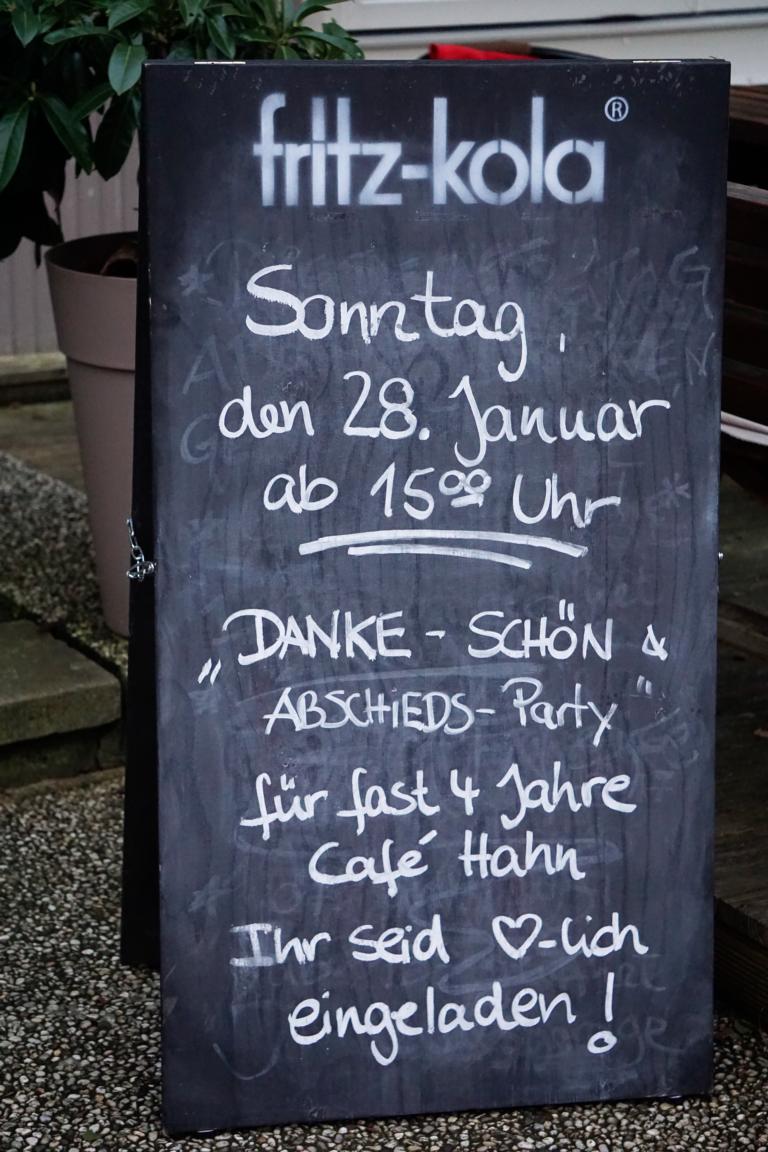 fritz-kola®
Sonntag,
den 28. Januar
ab 15⁰⁰ Uhr
„DANKE - SCHÖN &
ABSCHiEDS - Party"
für fast 4 Jahre
Café Hahn
Ihr seid ♡-lich
eingeladen!